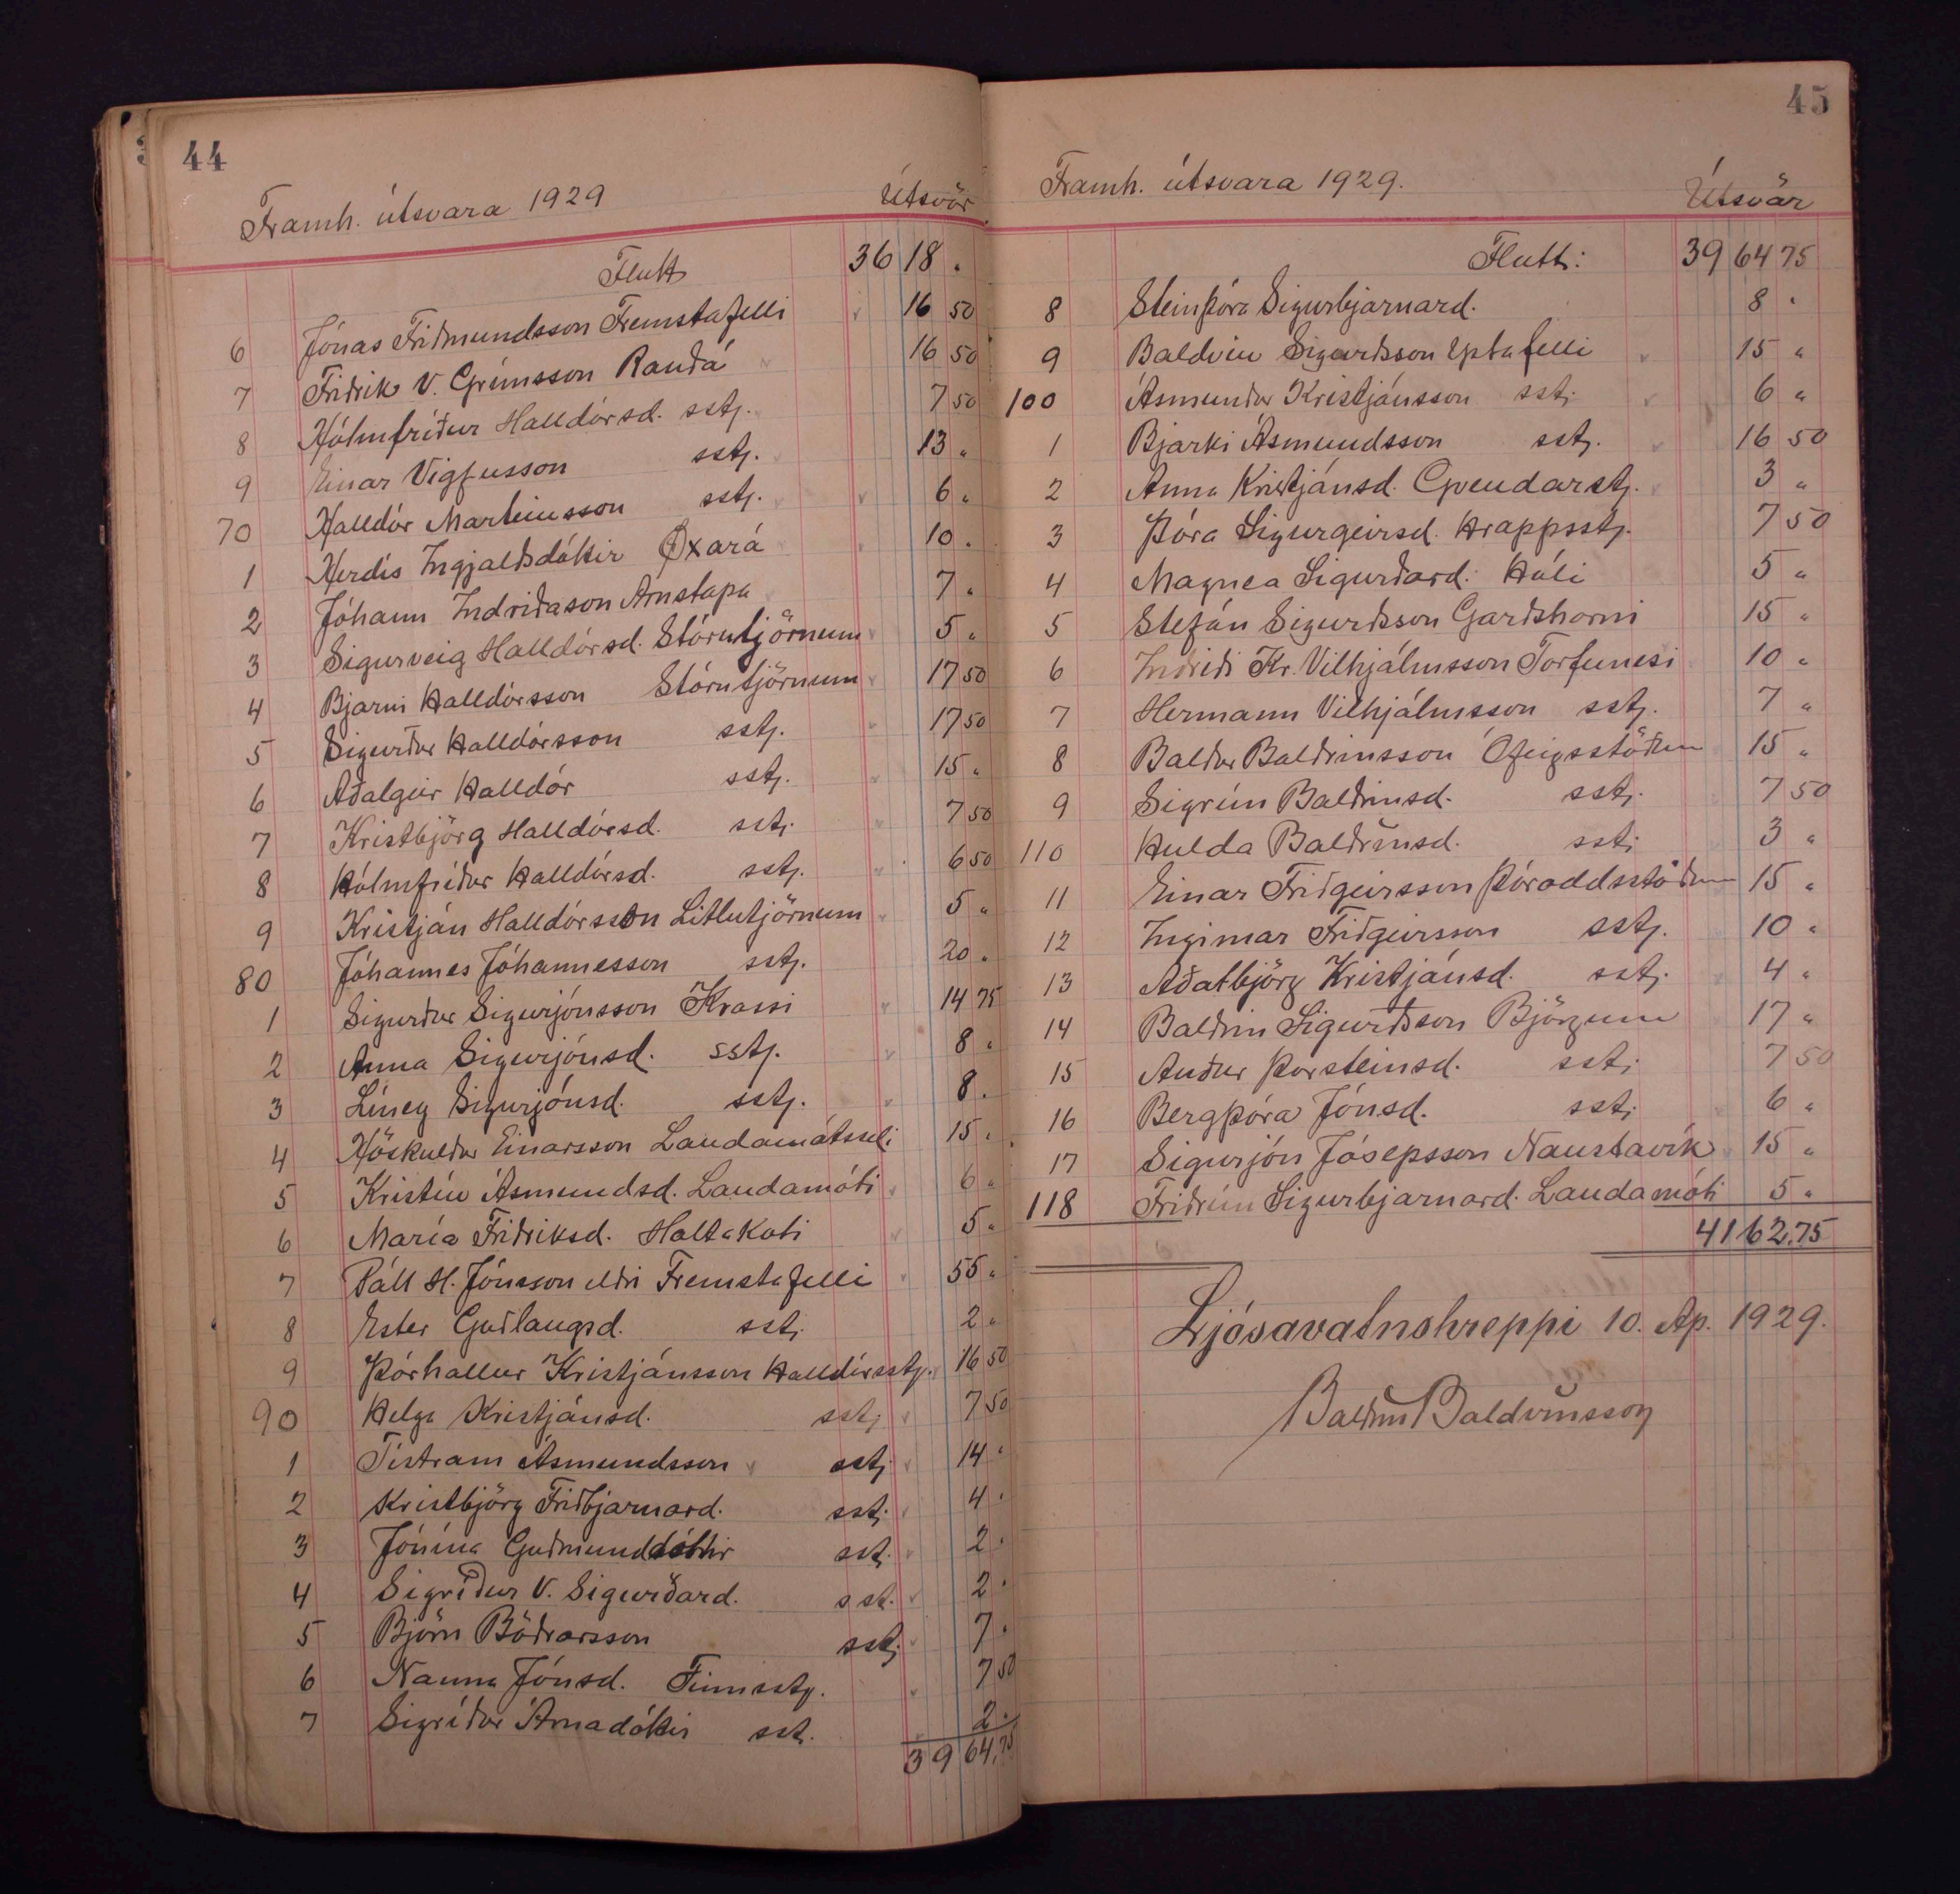 44
Framh. útsvara 1929 Útsvör
Flutt 3618 .
6 Jónas Friðmundsson Fremstafelli 16 50
7 Friðrik V. Grímsson Rauðá 16 50
8 Hólmfríður Halldórsd. sstj. 7 50
9 Einar Vigfusson sstj. 13 "
70 Halldór Marteinsson sstj. 6 "
1 Herdís Ingjaldsdóttir Öxará 10 .
2 Jóhann Indriðason Arnstapa 7 .
3 Sigurveig Halldórsd. Stórutjörnum 5 "
4 Bjarni Halldórsson Stórutjörnum 17 50
5 Sigurður Halldórsson sstj. 17 50
6 Aðalgeir Halldór sstj. 15 "
7 Kristbjörg Halldórsd. sstj. 7 50
8 Hólmfríður Halldórsd. sstj. 6 50
9 Kristján Halldórsson Litlutjörnum 5 "
80 Jóhannes Jóhannesson sstj. 20 "
1 Sigurður Sigurjónsson Krossi 14 75
2 Anna Sigurjónsd. sstj. 8 "
3 Líney Sigurjónsd. sstj. 8 .
4 Höskuldur Einarsson Landamótsseli 15 .
5 Kristín Ásmundsd. Landamóti 6 "
6 María Friðriksd. Holtakoti 5 "
7 Páll H. Jónsson eldri Fremstafelli 55 "
8 Ester Guðlaugsd. sstj. 2 "
9 Þórhallur Kristjánsson Halldórsstj. 16 50
90 Helga Kristjánsd. sstj 7 50
1 Tistram Ásmundsson sstj 14 "
2 Kristbjörg Friðbjarnard. sstj. 4 .
3 Jónína Guðmunddóttir sst. 2 .
4 Sigríður V. Sigurðard. sst. 2 .
5 Björn Böðvarsson sstj 7 .
6 Nanna Jónsd. Finnsstj. 7 50
7 Sigríður Árnadóttir sst. 2 .
3964,75
45
Framh. útsvara 1929. Útsvör
Flutt: 3964 75
8 Steinþóra Sigurbjarnard. 8 "
9 Baldvin Sigurðsson Yztafelli 15 "
100 Ásmundur Kristjánsson sstj. 6 "
1 Bjarki Ásmundsson sstj. 16 50
2 Anna Kristjánsd. Gvendarstj. 3 "
3 Þóra Sigurgeirsd. Hrappsstj. 7 50
4 Magnea Sigurðard. Hóli 5 "
5 Stefán Sigurðsson Garðshorni 15 "
6 Indriði Kr. Vilhjálmsson Torfunesi 10 "
7 Hermann Vilhjálmsson sstj. 7 "
8 Baldur Baldvinsson Ófeigsstöðum 15 "
9 Sigrún Baldvinsd. sstj. 7 50
110 Hulda Baldvinsd. sstj 3 "
11 Einar Friðgeirsson Þóroddsstöðum 15 "
12 Ingimar Friðgeirsson sstj. 10 "
13 Aðalbjörg Kristjánsd. sstj. 4 "
14 Baldvin Sigurðsson Björgum 17 "
15 Auður Þorsteinsd. sstj 7 50
16 Bergþóra Jónsd. sstj 6 "
17 Sigurjón Jósepsson Naustavík 15 "
118 Friðrún Sigurbjarnard. Landamóti 5 "
4162.75
Ljósavatnshreppi 10. Ap. 1929.
Baldvin Baldvinsson